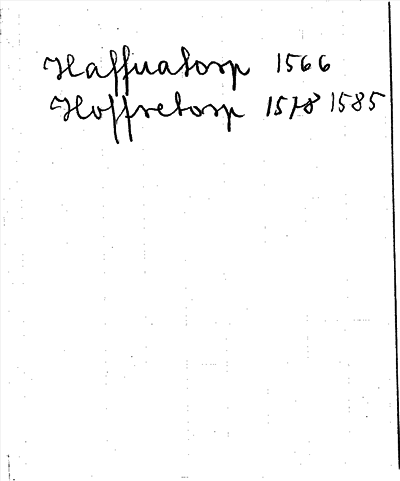 Haffuatorp 1566
Hoffretorp 1578 1585